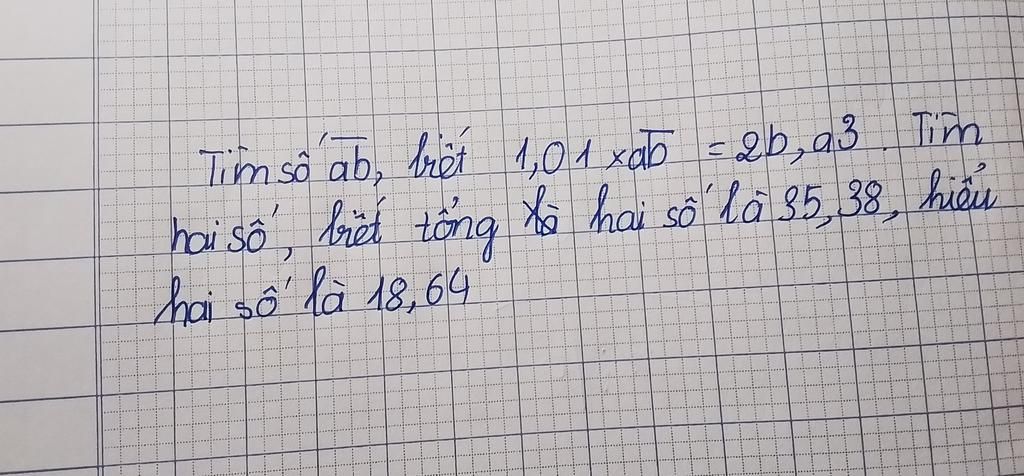 Tìm số ab, biết 1,01 x ab = 2b,a3. Tìm
hai số, biết tổng hai số là 35,38, hiệu
hai số là 18,64